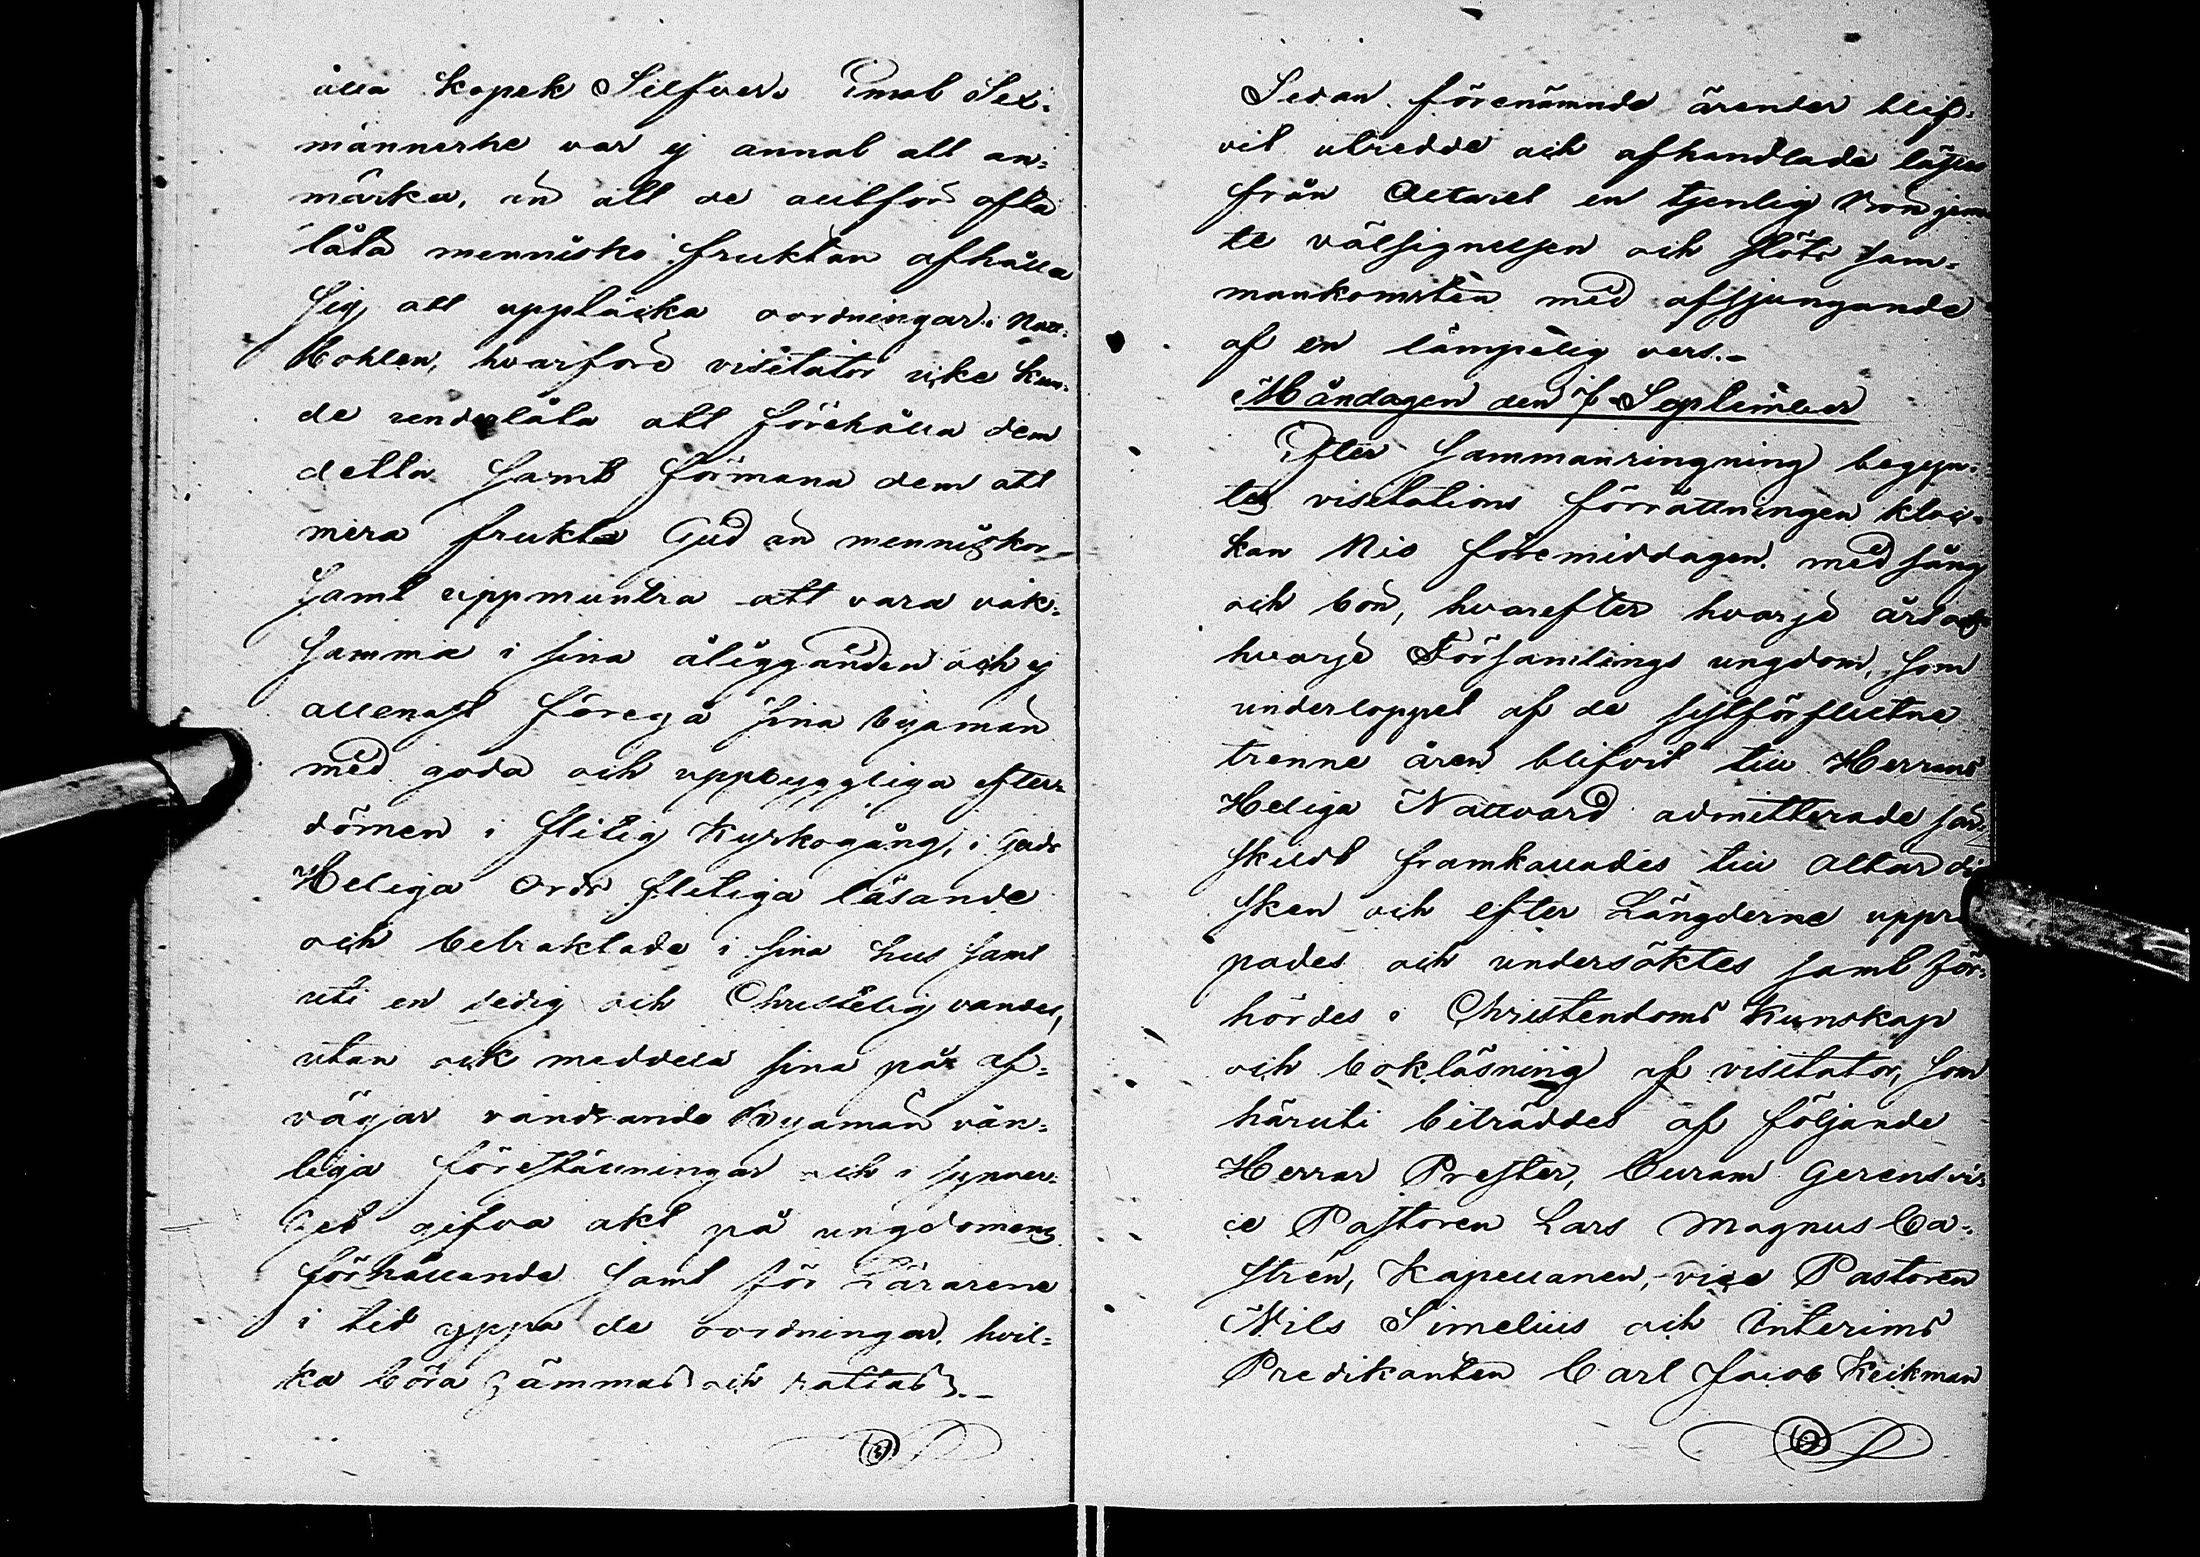 älla Kopek Silfver. Emot Sex-
männerne var ej annat att an-
märka, än att de alltför ofta
låta mennisko fruktan afhålla
sig att upptäcka oordningar i Natt-
bohlen, hvarföre visitator icke kun-
de underlåta att förehålla dem
detta samt förmana dem att
mera frukta Gud än menniskor
samt uppmuntra att vara vak-
samma i sina åligganden och ej
allenast föregå sina byamän
med goda och uppbyggliga efter-
dömen i flitig Kyrkogång, i Guds
Heliga Ords flitiga läsande
och betraktade i sina hus samt
uti en sedig och Christelig vandel,
utan ock meddela sina på af-
vägar vandrande Byamän vän-
liga föreställningar och i synner-
het gifva akt på ungdomens
förhållande samt för Lärarene
i tid yppa de oordningar, hvil-
ka böra hämmas och rättas.-
Sedan förenämnde ärender blif-
vit utredde och afhandlade lästes
från Altaret en tjenlig Bön jem-
te välsignelsen och slöts sam-
mankomsten med afsjungande
af en lämpelig vers.-
Måndagen den 7 September
Efter Sammanringning begyn-
tes visitations förrättningen kloc-
kan Nio föremiddagen med sång
och bön, hvarefter hvarje års och
hvarje Församlings ungdom, som
underloppet af de sistförflutne
trenne åren blifvit till Herrans
Heliga Nattvard admitterade sär-
skildt framkallades till Altar di-
sken och efter Längderne uppro-
pades och undersöktes samt för-
hördes i Christendoms Kunskap
och bokläsning af visitator, som
häruti biträddes af följande
Herrar Prester, Curam Gerens vi-
ce Pastoren Lars Magnus Ca-
strén, Kapellanen, vice Pastoren
Nils Simelius och Interims
Predikanten Carl Jacob Keckman